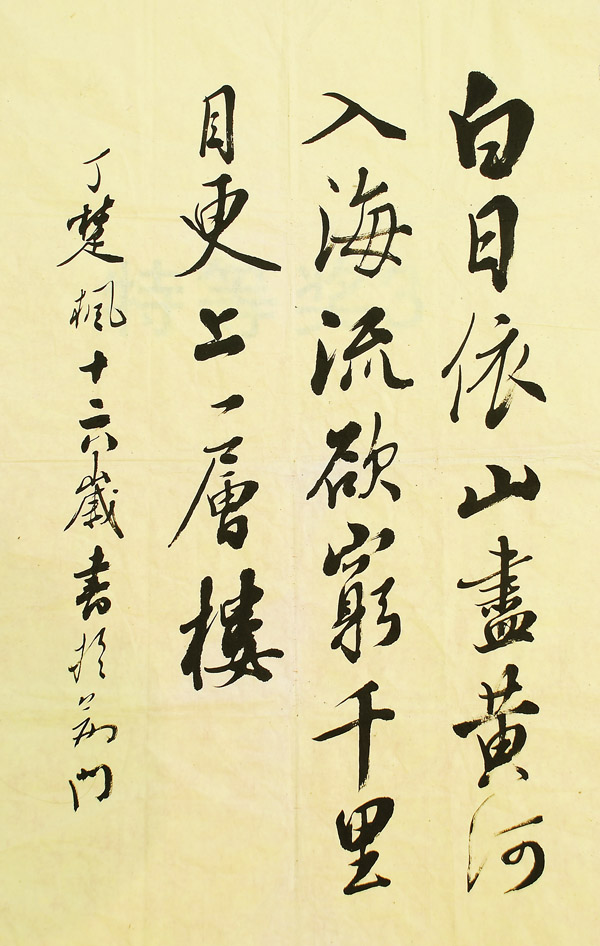 白日依山盡黄河
入海流欲窮千里
目更上一層樓
丁楚楓十六歲書於荊門